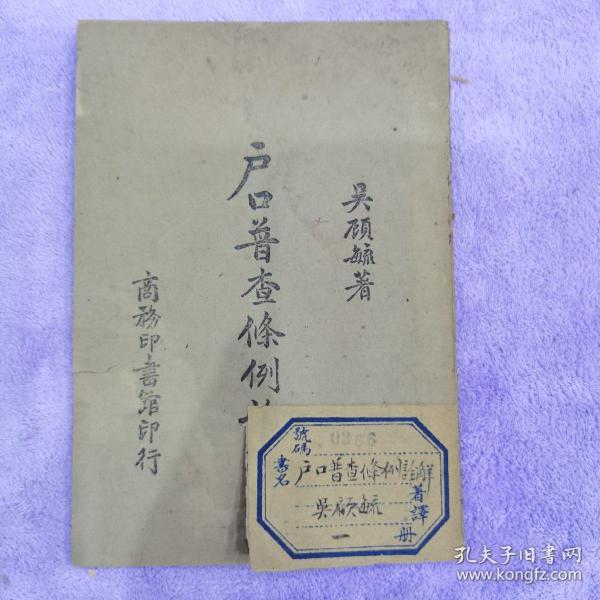 吴顾毓著
户口普查條例
商務印書館印行
號碼 0366
書名 户口普查條例詮解
吳顧毓 著譯
一 册
孔夫子旧书网
www.kongfz.com